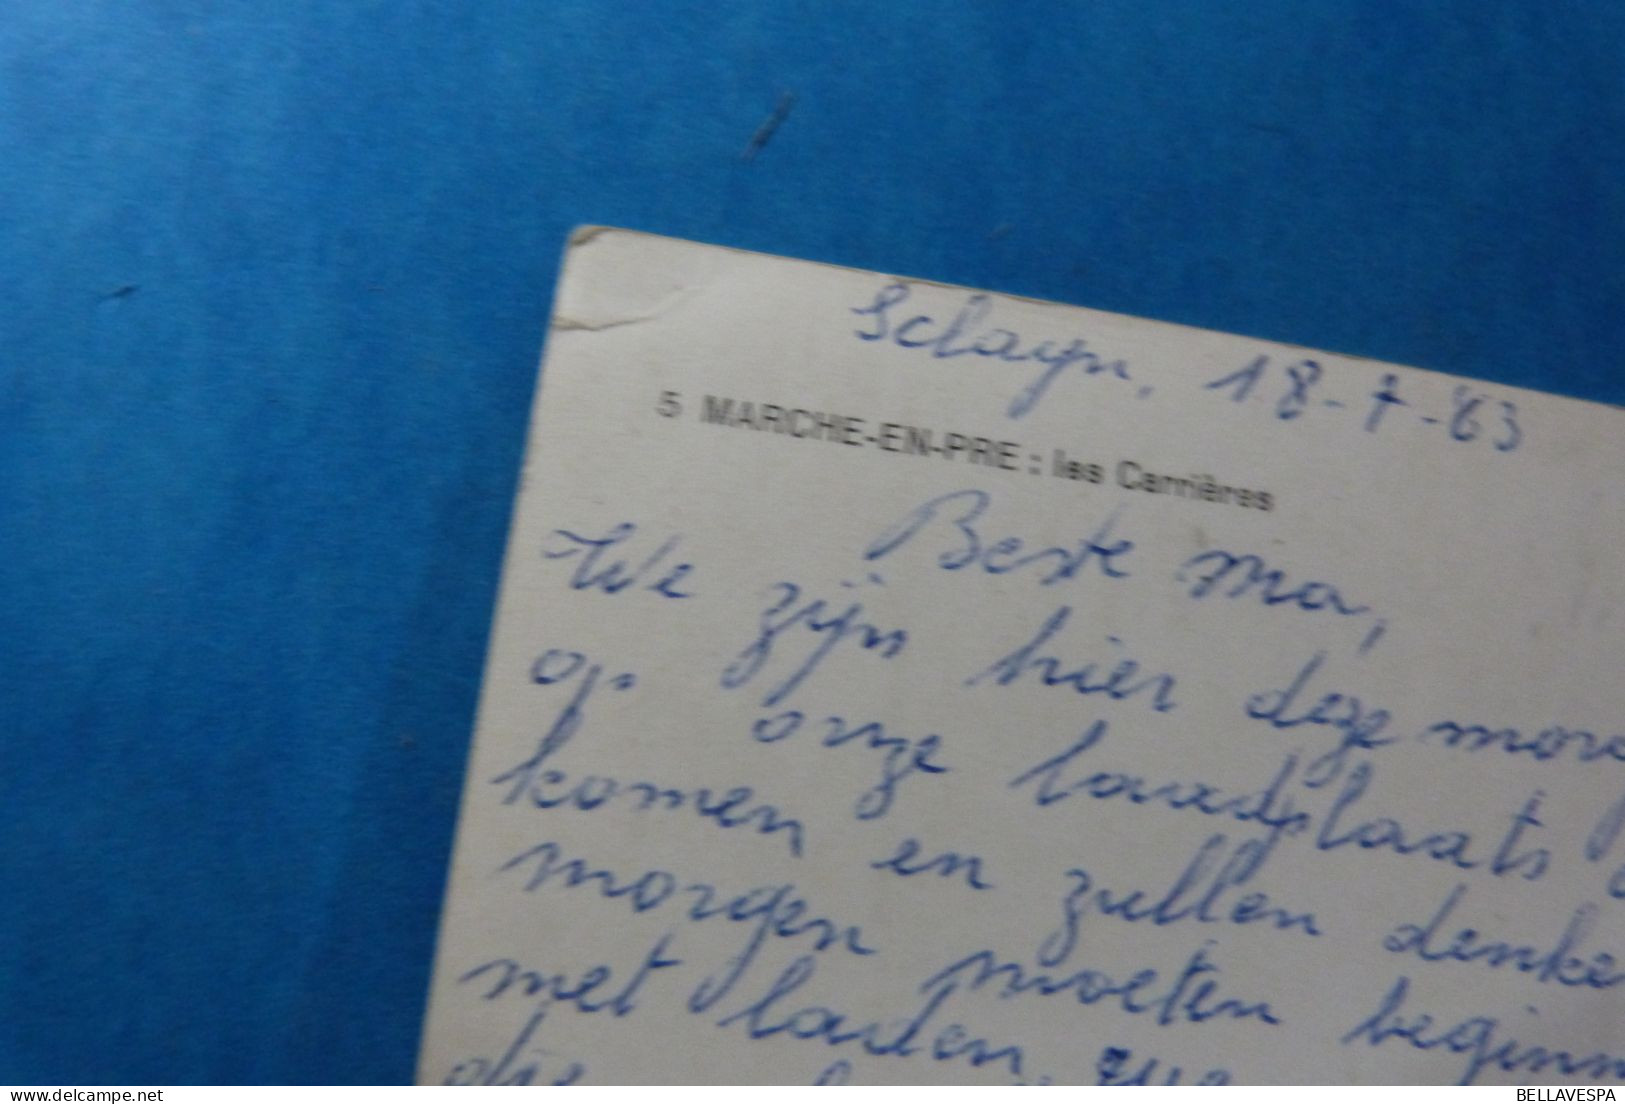 Sclayn, 18-7-83
5 MARCHE-EN-PRE : les Carrières
Beste ma,
We zijn hier deze morg
op onze laadplaats
komen en zullen denke
morgen moeten beginn
met laden,
die
BELLAVESPA